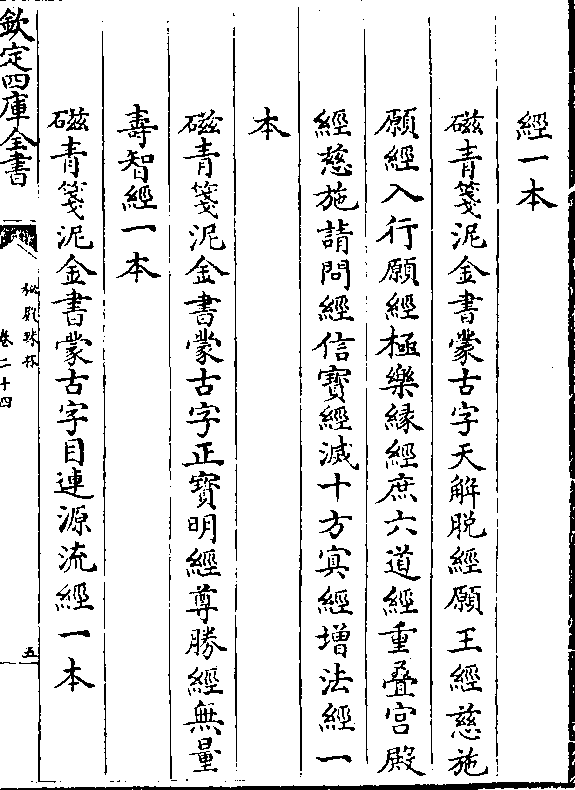 經一本
磁青箋泥金書蒙古字天解脱經願王經慈施
願經入行願經極樂縁經庶六道經重疊宫殿
經慈施請問經信寶經滅十方㝠經增法經一
本
磁青箋泥金書蒙古字正寶明經尊勝經無量
壽智經一本
磁青箋泥金書蒙古字目連源流經一本
欽定四庫全書
秘殿珠林
卷二十四
五